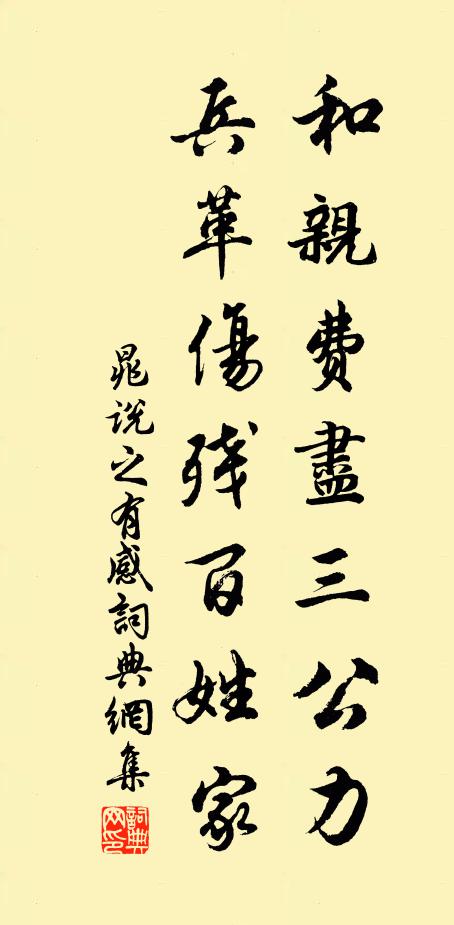 和親費盡三公力
兵革傷残百姓家
晁説之有感詞典網集
詞典网印